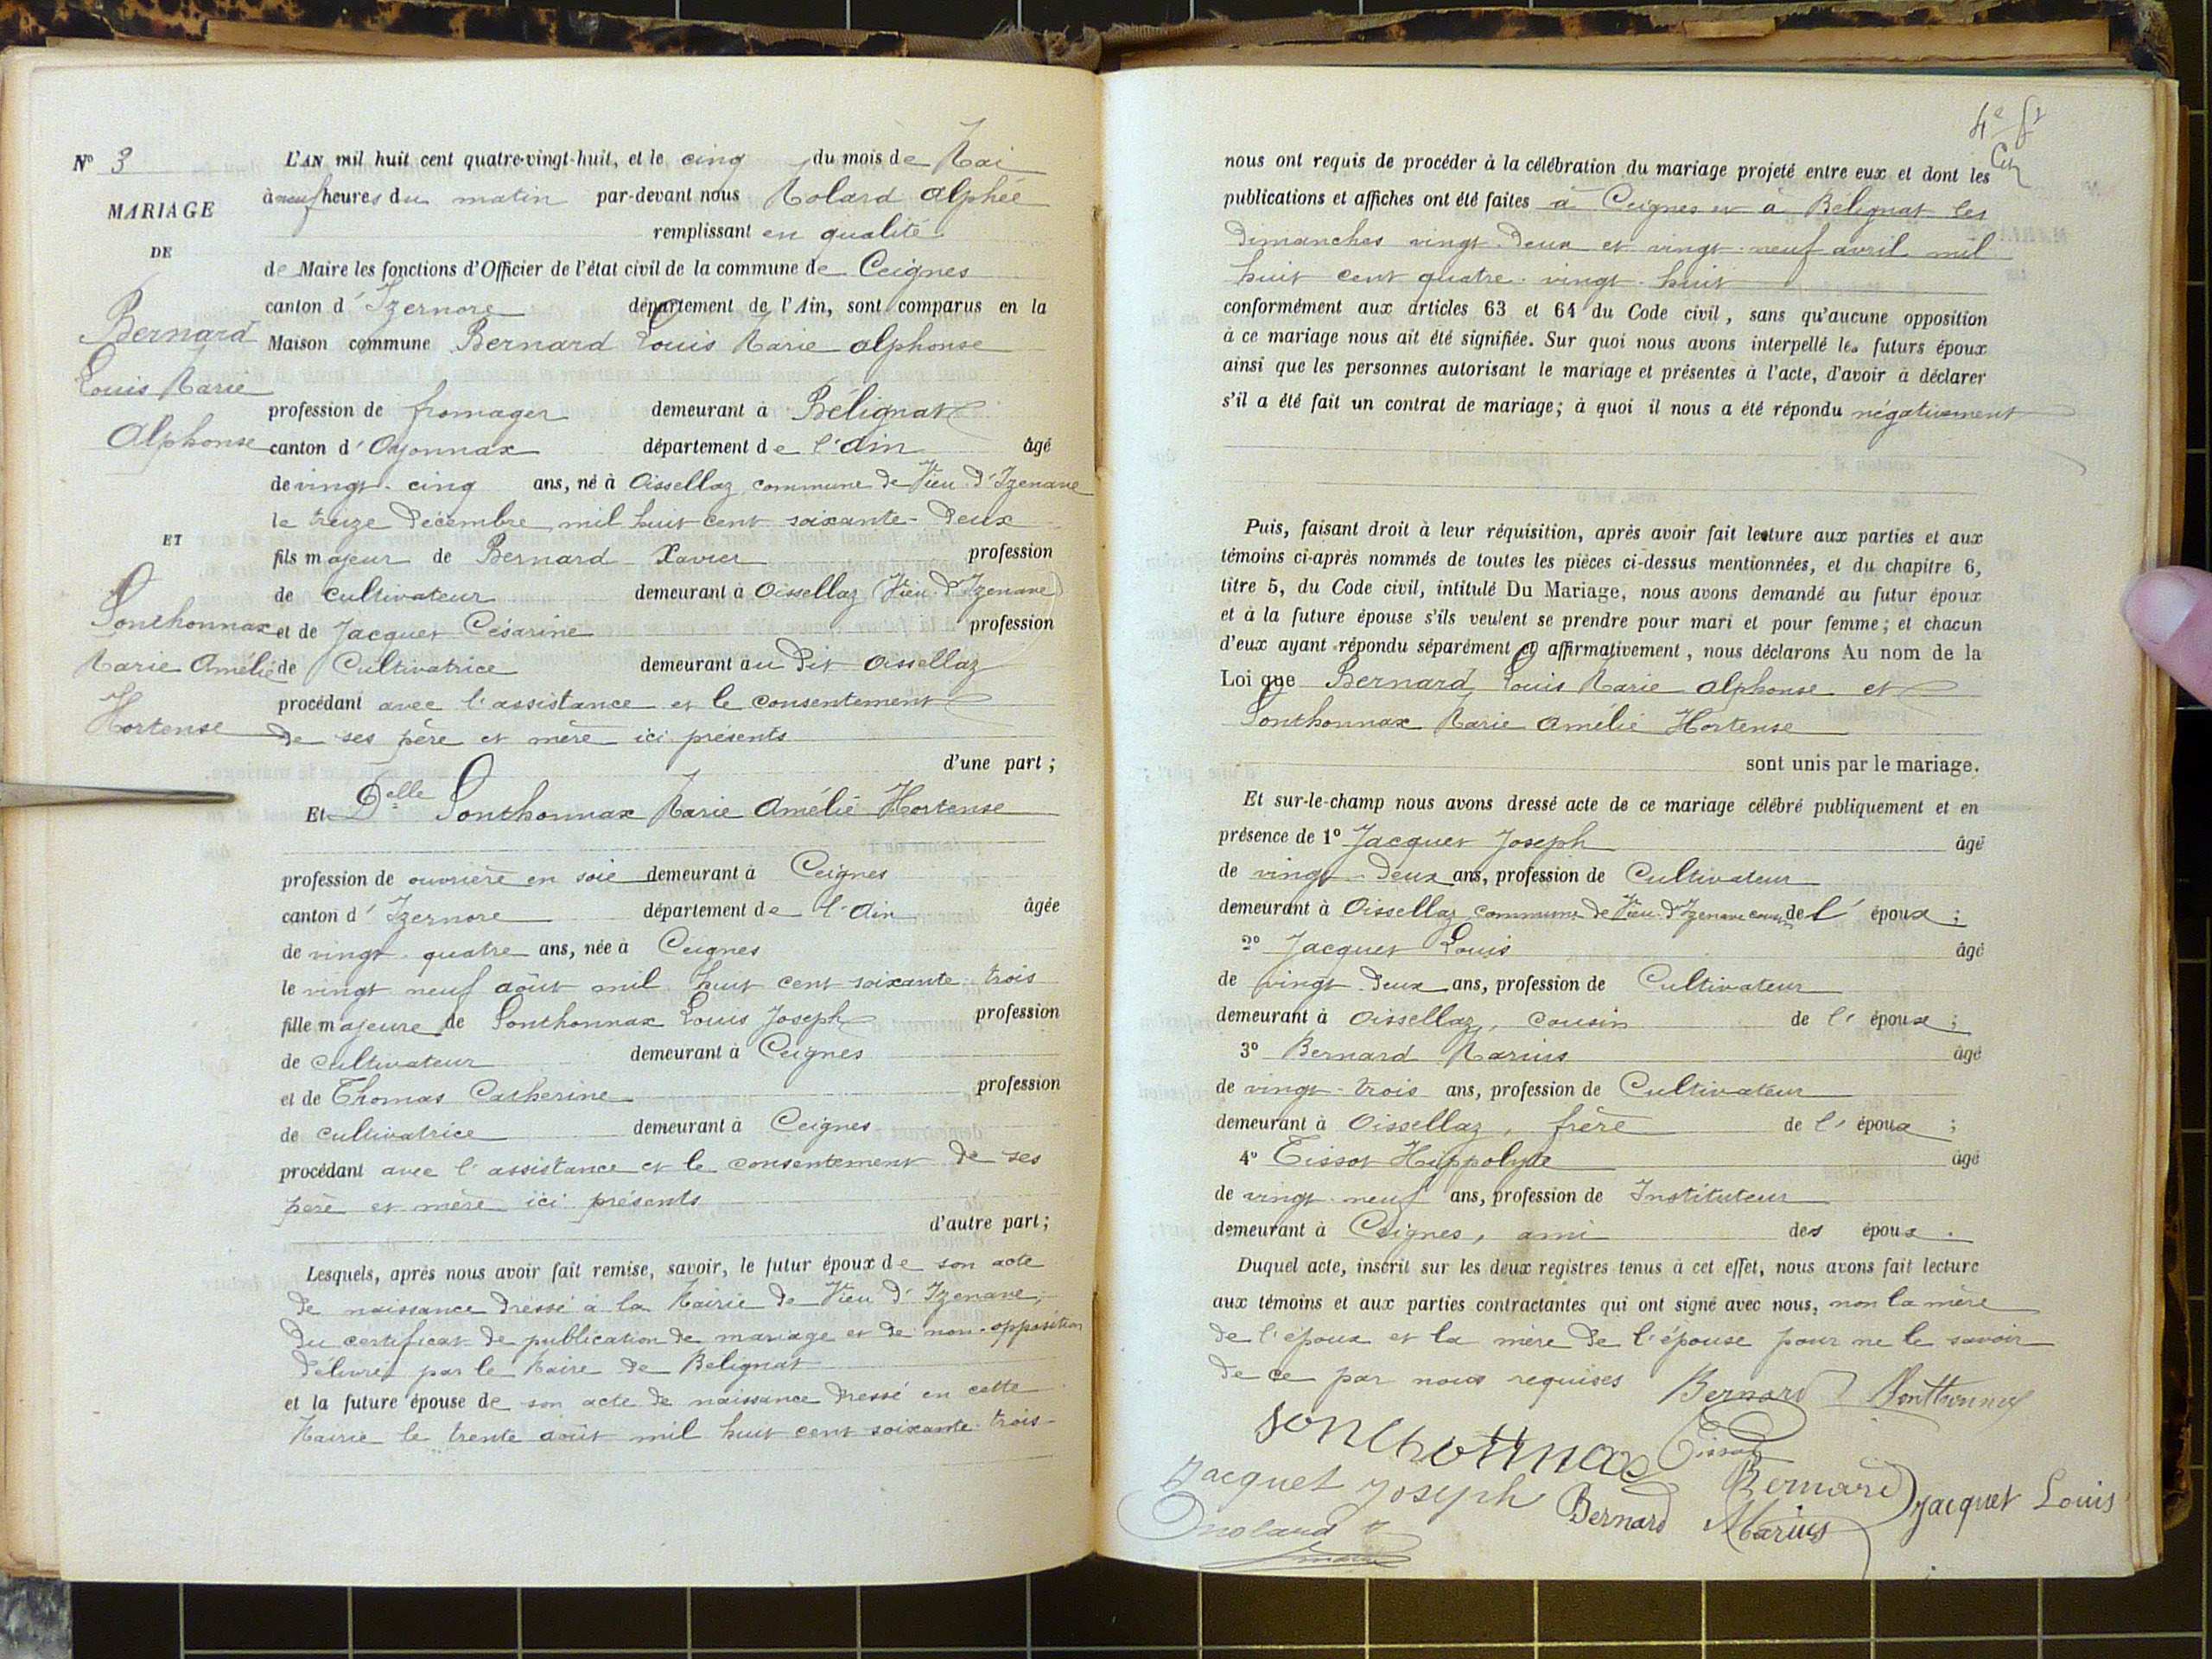 N° 3
MARIAGE
DE
Bernard
Louis Marie
Alphonse
ET
Sonthonnax
Marie Amélie
Hortense
L'AN mil huit cent quatre-vingt-huit, et le cinq du mois de Mai
à neuf heures du matin par-devant nous Molard Alphée
remplissant en qualité
de Maire les fonctions d'Officier de l'état civil de la commune de Ceignes
canton d'Izernore département de l'Ain, sont comparus en la
Maison commune Bernard Louis Marie Alphonse
profession de fromager demeurant à Bélignat
canton d'Oyonnax département de l'Ain âgé
de vingt-cinq ans, né à Oissellaz commune de Vieu-d'Izenave
le treize Décembre mil huit cent soixante-deux
fils majeur de Bernard Xavier profession
de cultivateur demeurant à Oissellaz (Vieu-d'Izenave)
et de Jacquet Césarine profession
de Cultivatrice demeurant au dit Oissellaz
procédant avec l'assistance et le consentement
de ses père et mère ici présents
d'une part;
Et Delle Sonthonnax Marie Amélie Hortense
profession de ouvrière en soie demeurant à Ceignes
canton d'Izernore département de l'Ain âgée
de vingt-quatre ans, née à Ceignes
le vingt neuf août mil huit cent soixante-trois
fille majeure de Sonthonnax Louis Joseph profession
de cultivateur demeurant à Ceignes
et de Thomas Catherine profession
de cultivatrice demeurant à Ceignes
procédant avec l'assistance et le consentement de ses
père et mère ici présents
d'autre part;
Lesquels, après nous avoir fait remise, savoir, le futur époux de son acte
de naissance dressé à la Mairie de Vieu d'Izenave,
du certificat de publication de mariage et de non-opposition
délivré par le Maire de Bélignat
et la future épouse de son acte de naissance dressé en cette
Mairie le trente août mil huit cent soixante-trois
4e ft
nous ont requis de procéder à la célébration du mariage projeté entre eux et dont les
publications et affiches ont été faites à Ceignes et à Bélignat les
dimanches vingt-deux et vingt-neuf avril mil
huit cent quatre-vingt-huit
conformément aux articles 63 et 64 du Code civil, sans qu'aucune opposition
à ce mariage nous ait été signifiée. Sur quoi nous avons interpellé les futurs époux
ainsi que les personnes autorisant le mariage et présentes à l'acte, d'avoir à déclarer
s'il a été fait un contrat de mariage; à quoi il nous a été répondu négativement
Puis, faisant droit à leur réquisition, après avoir fait lecture aux parties et aux
témoins ci-après nommés de toutes les pièces ci-dessus mentionnées, et du chapitre 6,
titre 5, du Code civil, intitulé Du Mariage, nous avons demandé au futur époux
et à la future épouse s'ils veulent se prendre pour mari et pour femme; et chacun
d'eux ayant répondu séparément et affirmativement, nous déclarons Au nom de la
Loi que Bernard Louis Marie Alphonse et
Sonthonnax Marie Amélie Hortense
sont unis par le mariage.
Et sur-le-champ nous avons dressé acte de ce mariage célébré publiquement et en
présence de 1° Jacquet Joseph âgé
de vingt-deux ans, profession de Cultivateur
demeurant à Oissellaz, commune de Vieu-d'Izenave cousin de l'époux;
2° Jacquet Louis âgé
de vingt-deux ans, profession de Cultivateur
demeurant à Oissellaz, cousin de l'époux;
3° Bernard Marius âgé
de vingt-trois ans, profession de Cultivateur
demeurant à Oissellaz, frère de l'époux;
4° Tissot Hippolyte âgé
de vingt-neuf ans, profession de Instituteur
demeurant à Ceignes, ami des époux.
Duquel acte, inscrit sur les deux registres tenus à cet effet, nous avons fait lecture
aux témoins et aux parties contractantes qui ont signé avec nous, non la mère
de l'époux et la mère de l'épouse pour ne le savoir
de ce par nous requises Bernard Sonthonnax
Sonthonnax Tissot
Jacquet Joseph Bernard Bernard Marius Jacquet Louis
Molard